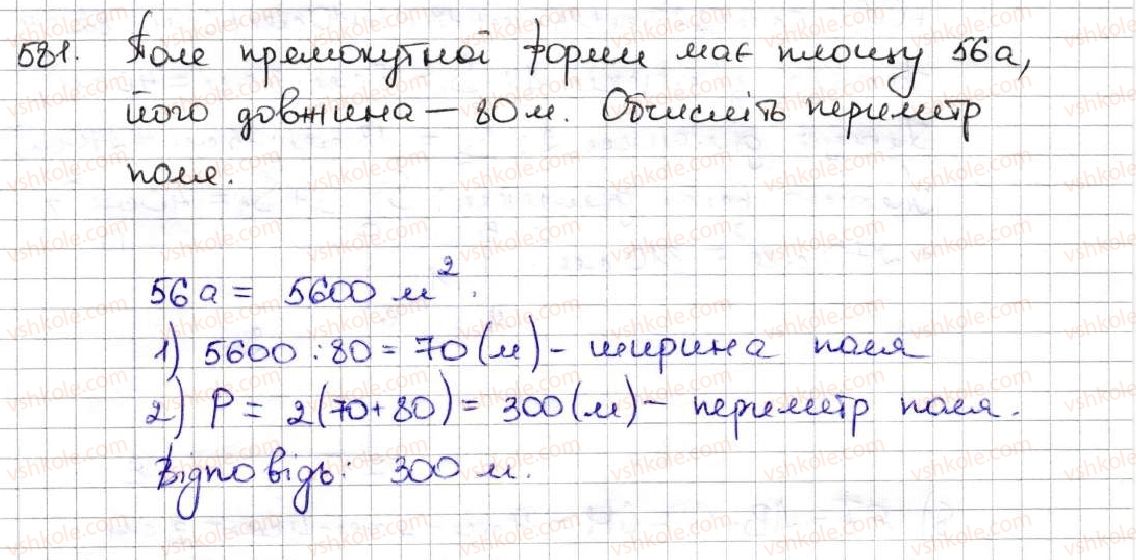 581. Поле прямокутної форми має площу 56а,
його довжина — 80 м. Обчисліть периметр
поля.
56а = 5600 м².
1) 5600 : 80 = 70 (м) - ширина поля
2) P = 2(70+80) = 300 (м) - периметр поля.
Відповідь: 300 м.